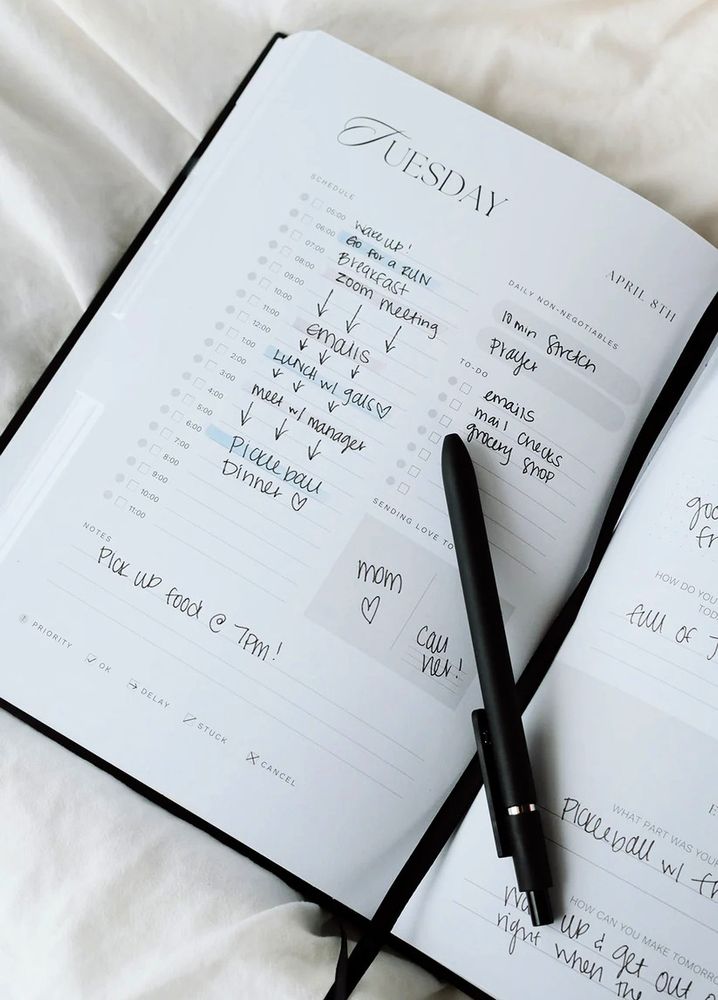 TUESDAY
APRIL 8TH
SCHEDULE
05:00 wake up!
06:00 Go for a RUN
07:00 Breakfast
08:00 zoom meeting
09:00
10:00
11:00 emails
12:00
1:00 Lunch w/ gals ♡
2:00
3:00 meet w/ manager
4:00
5:00
6:00 Pickleball
7:00 Dinner ♡
8:00
9:00
10:00
11:00
DAILY NON-NEGOTIABLES
10 min Stretch
Prayer
TO-DO
emails
mail checks
grocery shop
SENDING LOVE TO
mom
♡
call
her!
NOTES
Pick up food @ 7pm!
PRIORITY
OK
DELAY
STUCK
CANCEL
HOW DO YOU
full of
WHAT PART WAS YOUR
Pickleball w/
HOW CAN YOU MAKE TOMORRO
up & get out
right when the